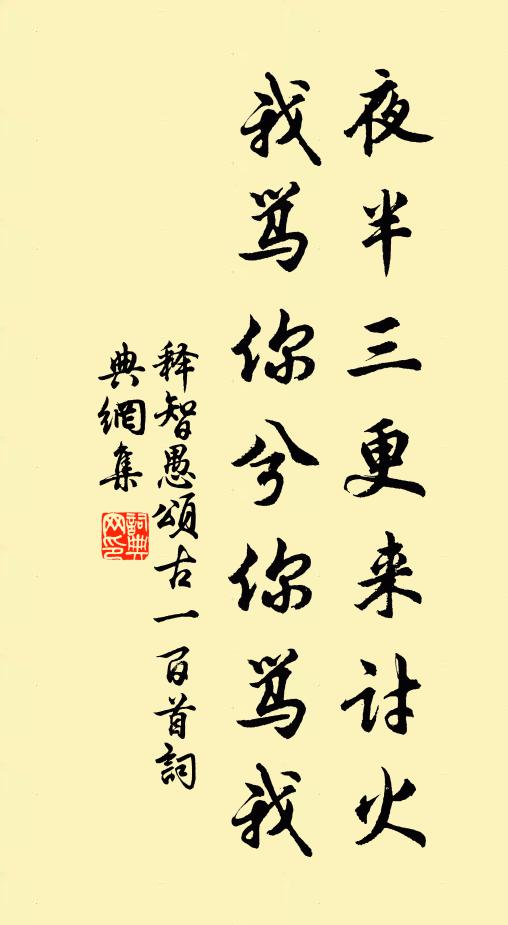 夜半三更来讨火
我骂你兮你骂我
释智愚颂古一百首詞
典網集
詞典网印